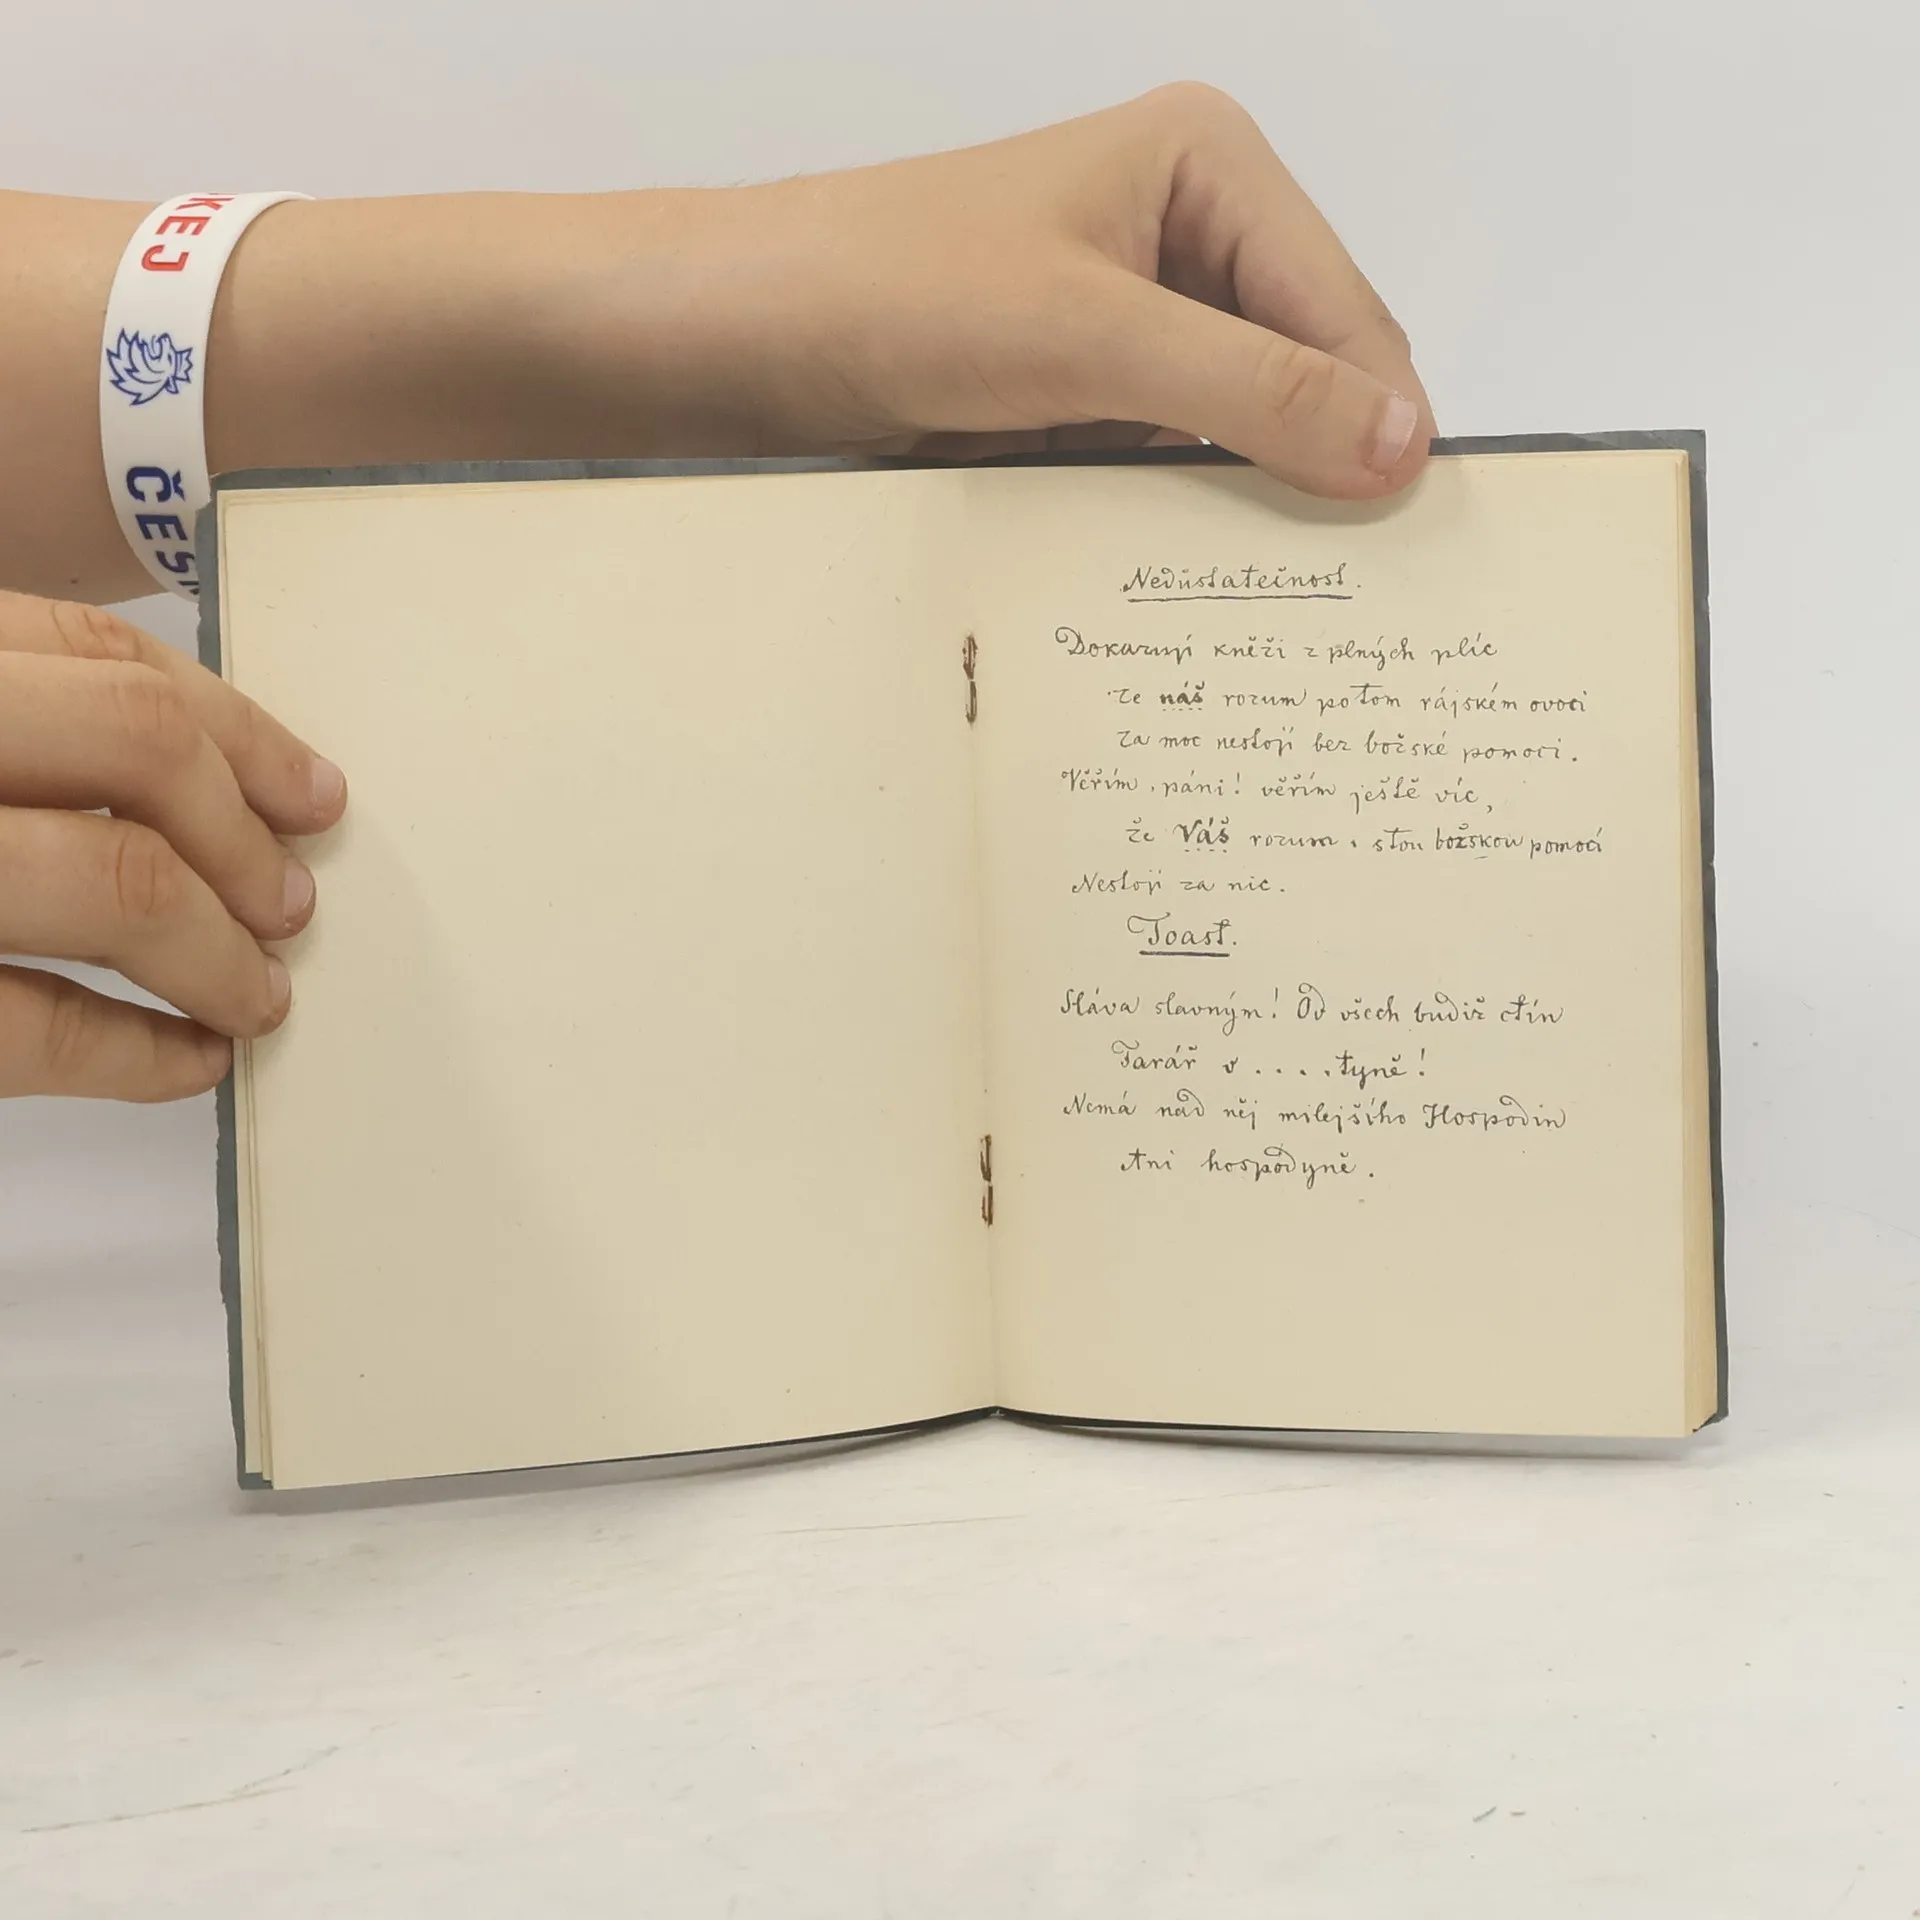 KEJ
ČES
Nedůstatečnost.
Dokazují kněži z plných plic
že náš rozum potom rájském ovoci
Za moc nestojí bez božské pomoci.
Věřím, páni! věřím ještě víc,
že Váš rozum, s tou božskou pomocí
Nestojí za nic.
Toast.
Sláva slavným! Od všech budiž ctín
Farář v . . . . týně!
Nemá nad něj milejšího Hospodin
Ani hospodyně.